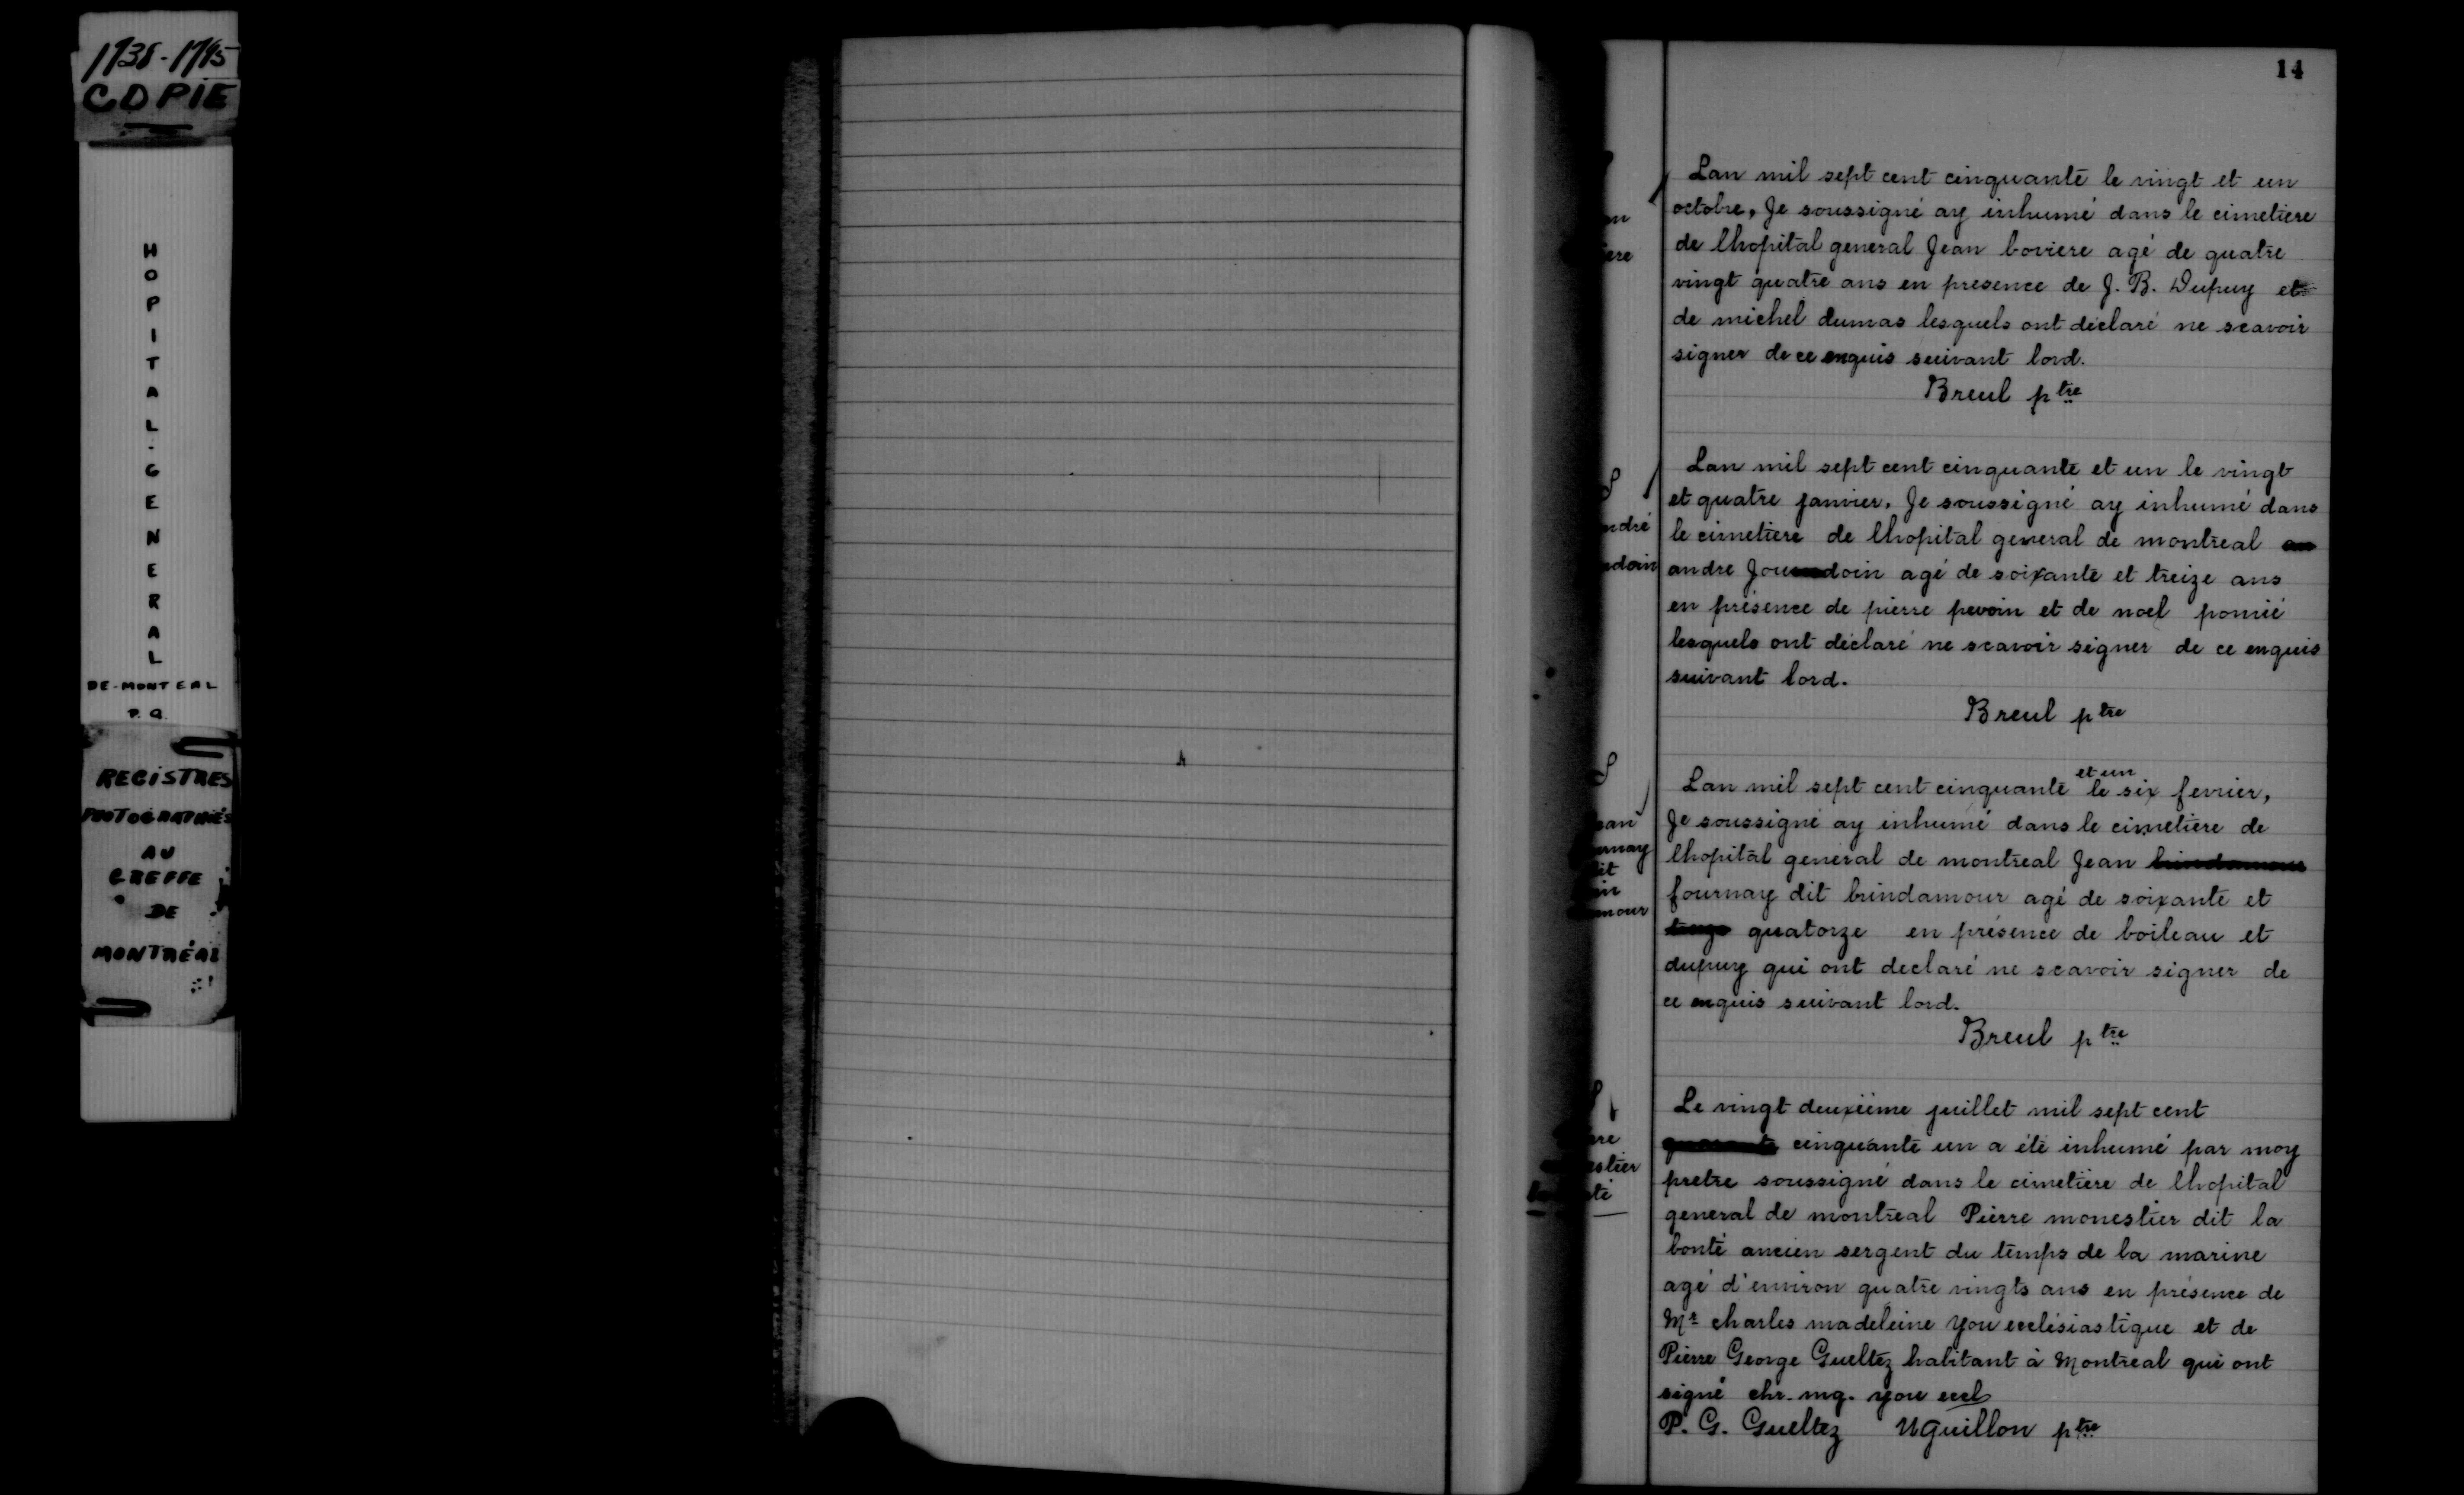 1738-1795
COPIE
HOPITAL-GENERAL
DE-MONTEAL
P.Q.
REGISTRES
PHOTOGRAPHIÉS
AU
GREFFE
DE
MONTRÉAL
14
Lan mil sept cent cinquante le vingt et un
octobre, Je soussigné ay inhumé dans le cimetiere
de lhopital general Jean boviere agé de quatre
vingt quatre ans en presence de J. B. Dupuy et
de michel dumas lesquels ont déclaré ne scavoir
signer de ce enquis suivant lord.
Breul ptre
ere
Lan mil sept cent cinquante et un le vingt
et quatre janvier, Je soussigné ay inhumé dans
le cimetiere de lhopital general de montreal
andre Jou doin agé de soixante et treize ans
en présence de pierre pevoin et de noel pomié
lesquels ont déclaré ne scavoir signer de ce enquis
suivant lord.
Breul ptre
ndré
doin
Lan mil sept cent cinquante et un le six fevrier,
Je soussigné ay inhumé dans le cimetiere de
lhopital general de montreal Jean brindamour
fournay dit brindamour agé de soixante et
quatorze en présence de boileau et
dupuy qui ont declaré ne scavoir signer de
ce enquis suivant lord.
Breul ptre
ean
rnay
it
in
amour
Le vingt deuxiéme juillet mil sept cent
quarante cinquante un a été inhumé par moy
pretre soussigné dans le cimetiere de lhopital
general de montreal Pierre monestier dit la
bonté ancien sergent du temps de la marine
agé d'environ quatre vingts ans en présence de
Mr charles madeleine you ecclésiastique et de
Pierre George Gueltez habitant à Montreal qui ont
signé chr. mg. you eccl
P. G. Gueltez NGuillon ptre
estier
té